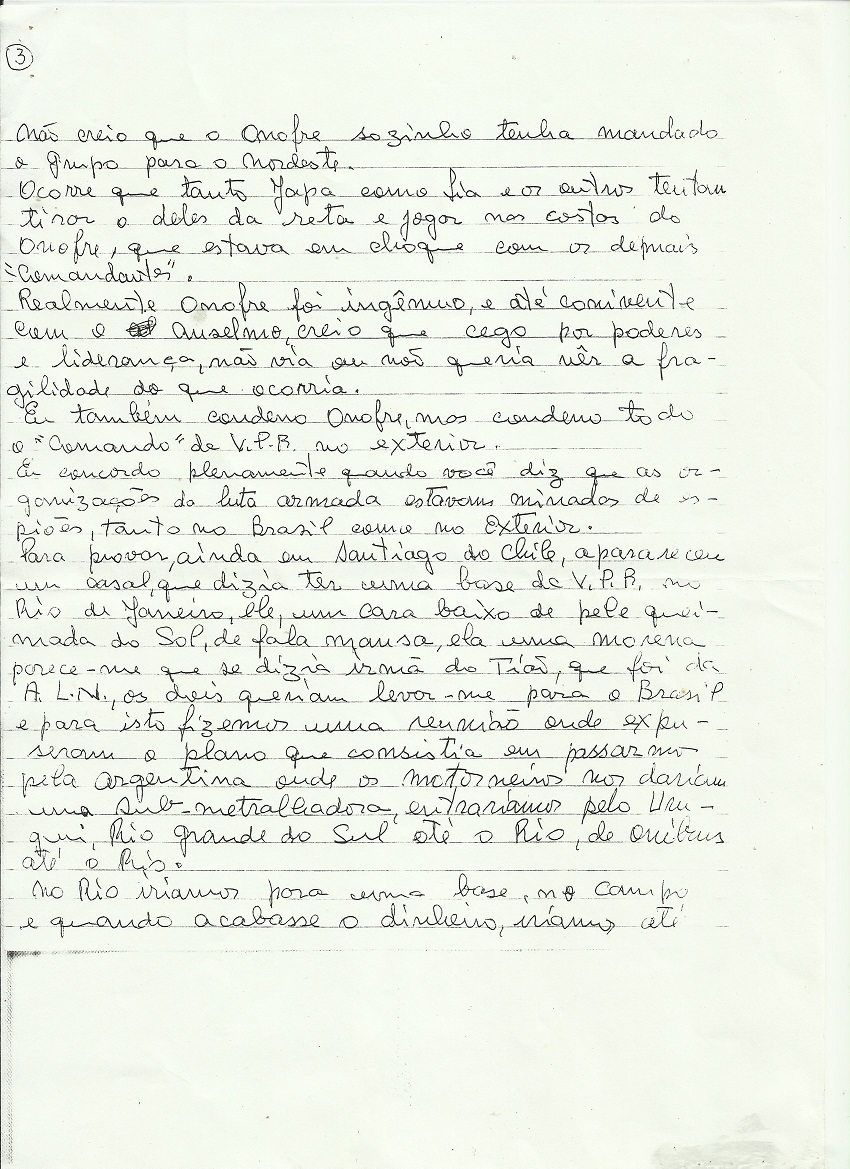 3
Não creio que o Onofre sozinho tenha mandado
o grupo para o nordeste.
Ocorre que tanto Japa como Lia e os outros tentam
tirar o deles da reta e jogar nas costas do
Onofre, que estava em choque com os depmais
"Comandantes".
Realmente Onofre foi ingênuo, e até conivente
com o Anselmo, creio que cego por poderes
e liderança, não via ou não queria vêr a fra-
gilidade do que ocorria.
Eu também condeno Onofre, mas condeno todo
o "Comando" da V.P.R. no exterior.
Eu concordo plenamente quando você diz que as or-
ganizações da luta armada estavam minadas de es-
piões, tanto no Brasil como no Exterior.
Para provar, ainda em Santiago do Chile, aparareceu
um casal, que dizia ter uma base da V.P.R. no
Rio de Janeiro, ele, um cara baixo de pele quei-
mada do Sol, de fala mansa, ela uma morena
parece-me que se dizia irmã do Tião, que foi da
A.L.N., os dois queriam levar-me para o Brasil
e para isto fizemos uma reunião onde expu-
seram o plano que consistia em passarmos
pela argentina onde os motorneiros nos dariam
uma sub-metralhadora, entraríamos pelo Uru-
guai, Rio grande do Sul até o Rio, de onibus
até o Rio.
No Rio iriamos para uma base, no campo
e quando acabasse o dinheiro, iriamos até